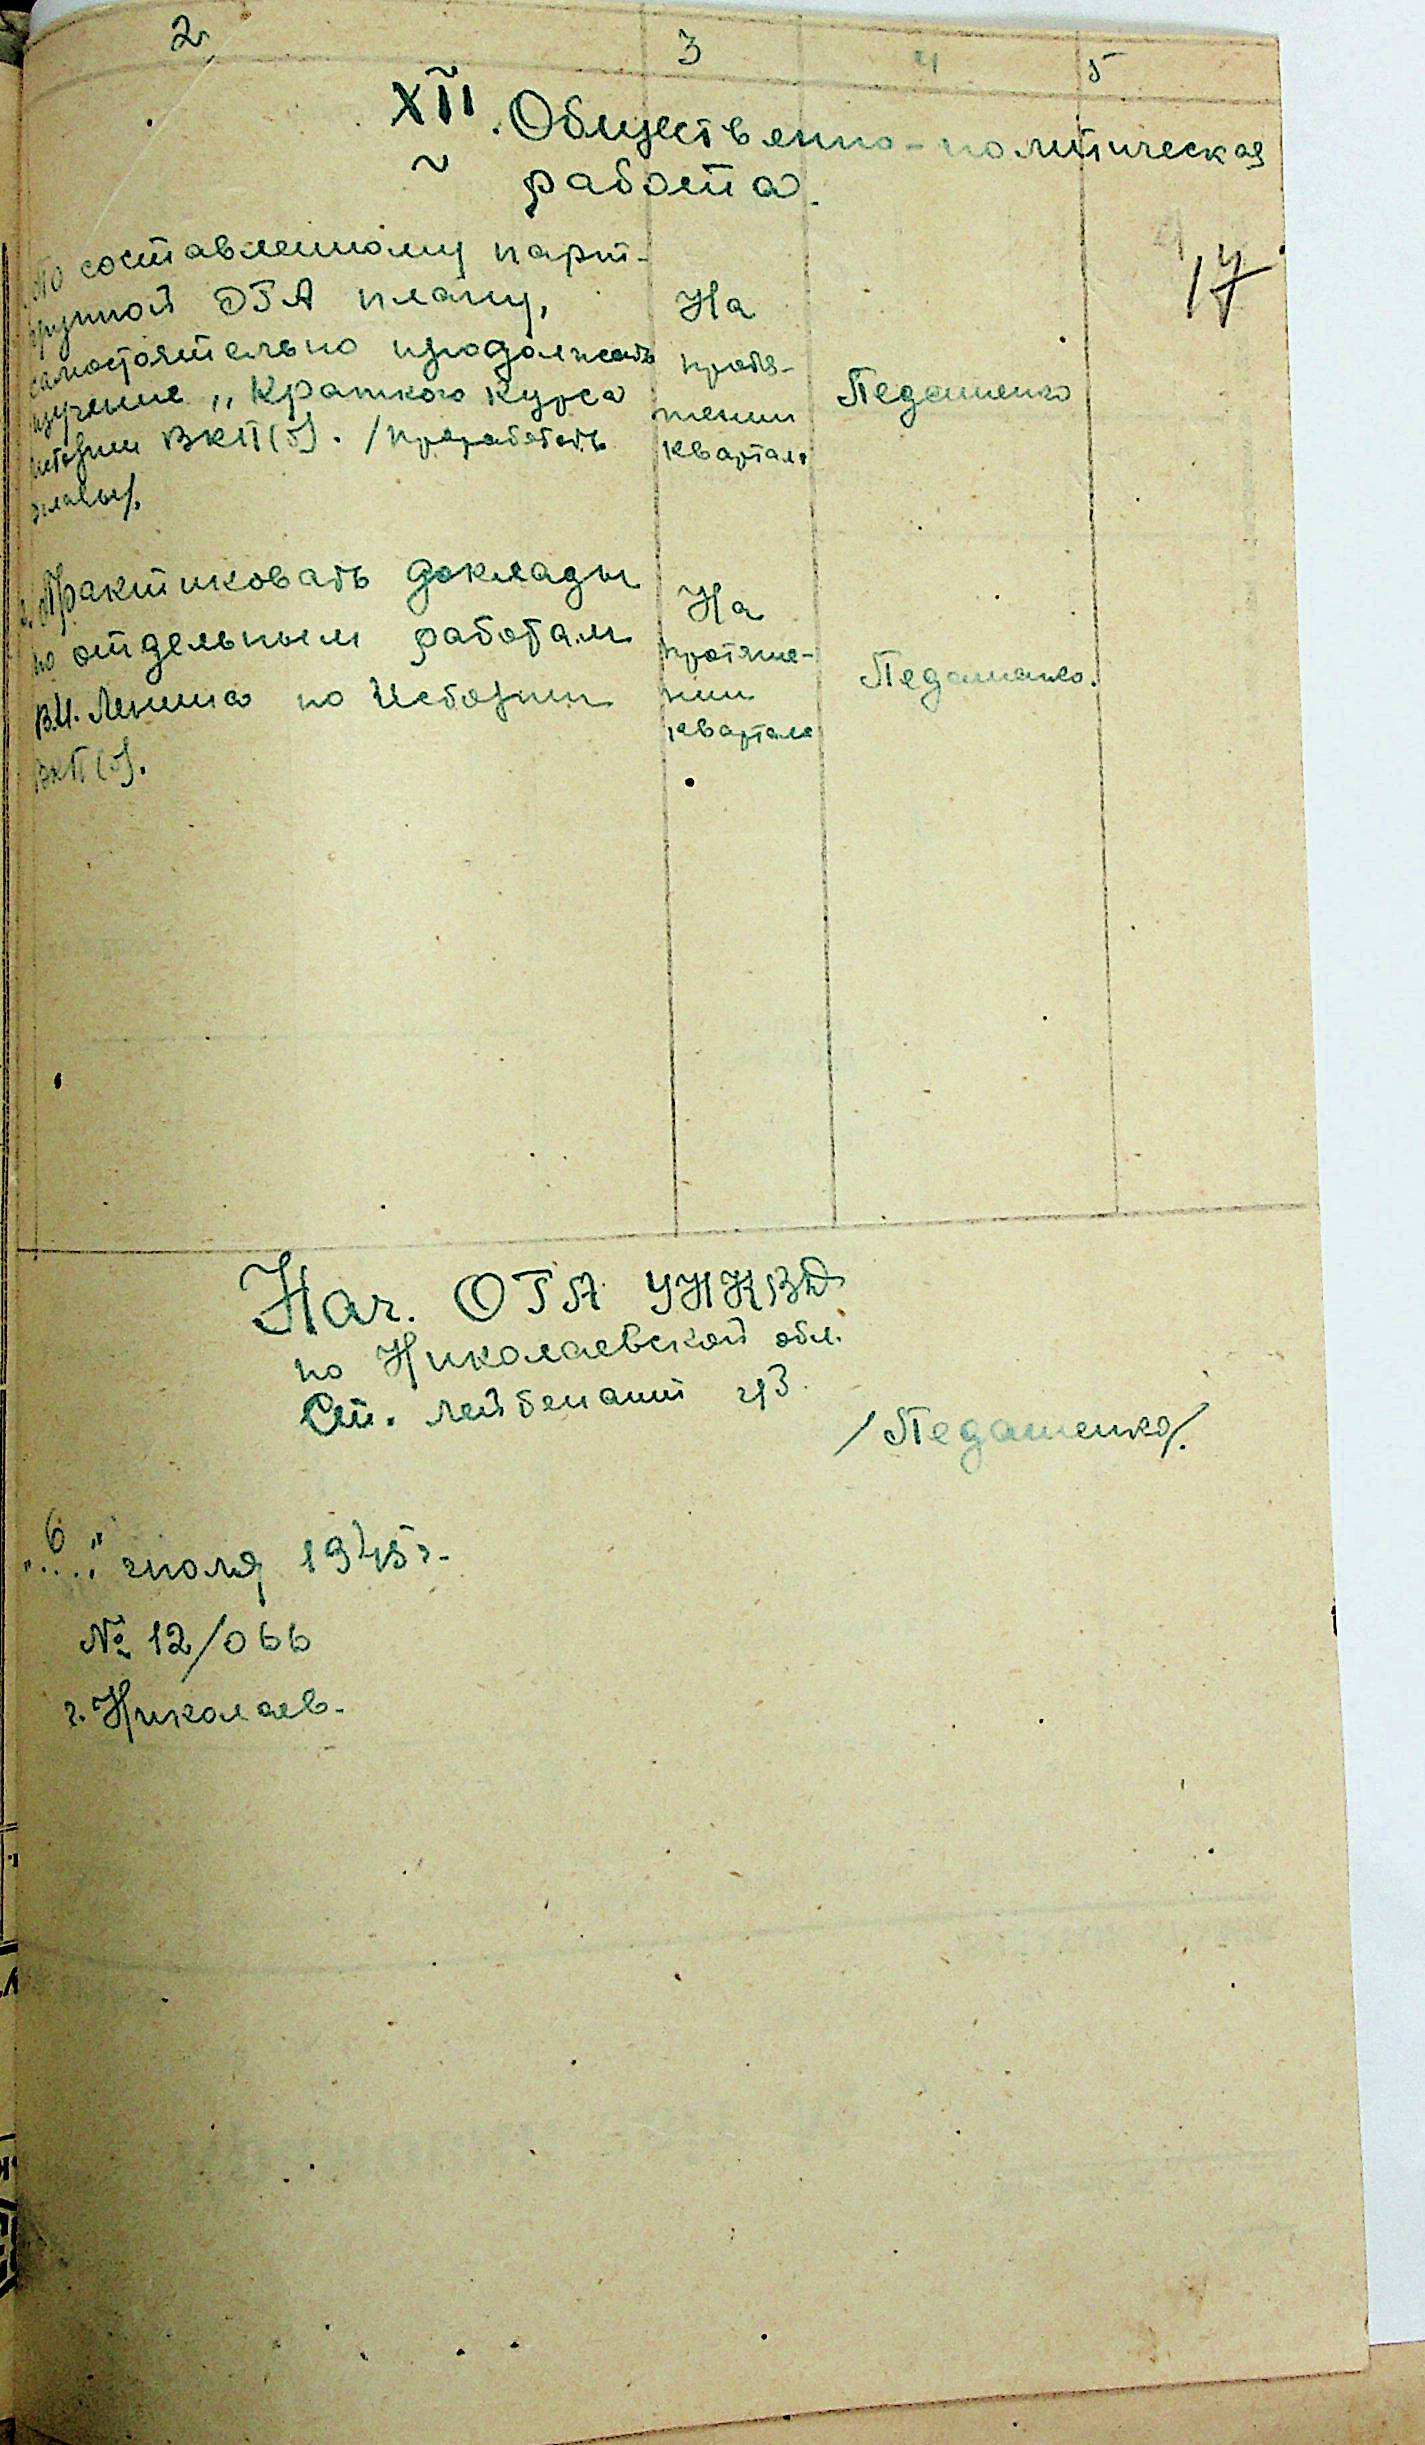 2 3 4 5
XII. Общественно-политическая
работа.
17
По составленному парт-
группой ОГА плану,
самостоятельно продолжать
изучение „Краткого курса
истории ВКП(б). /проработать
главы/.
На
протя-
жении
квартала
Педашенко
Практиковать доклады
по отдельным работам
В.И. Ленина по Истории
ВКП(б).
На
протяже-
нии
квартала
Педашенко.
Нач. ОГА УНКВД
по Николаевской обл.
Ст. лейтенант г/б
/Педашенко/.
„6" июля 1945 г.
№ 12/066
г. Николаев.